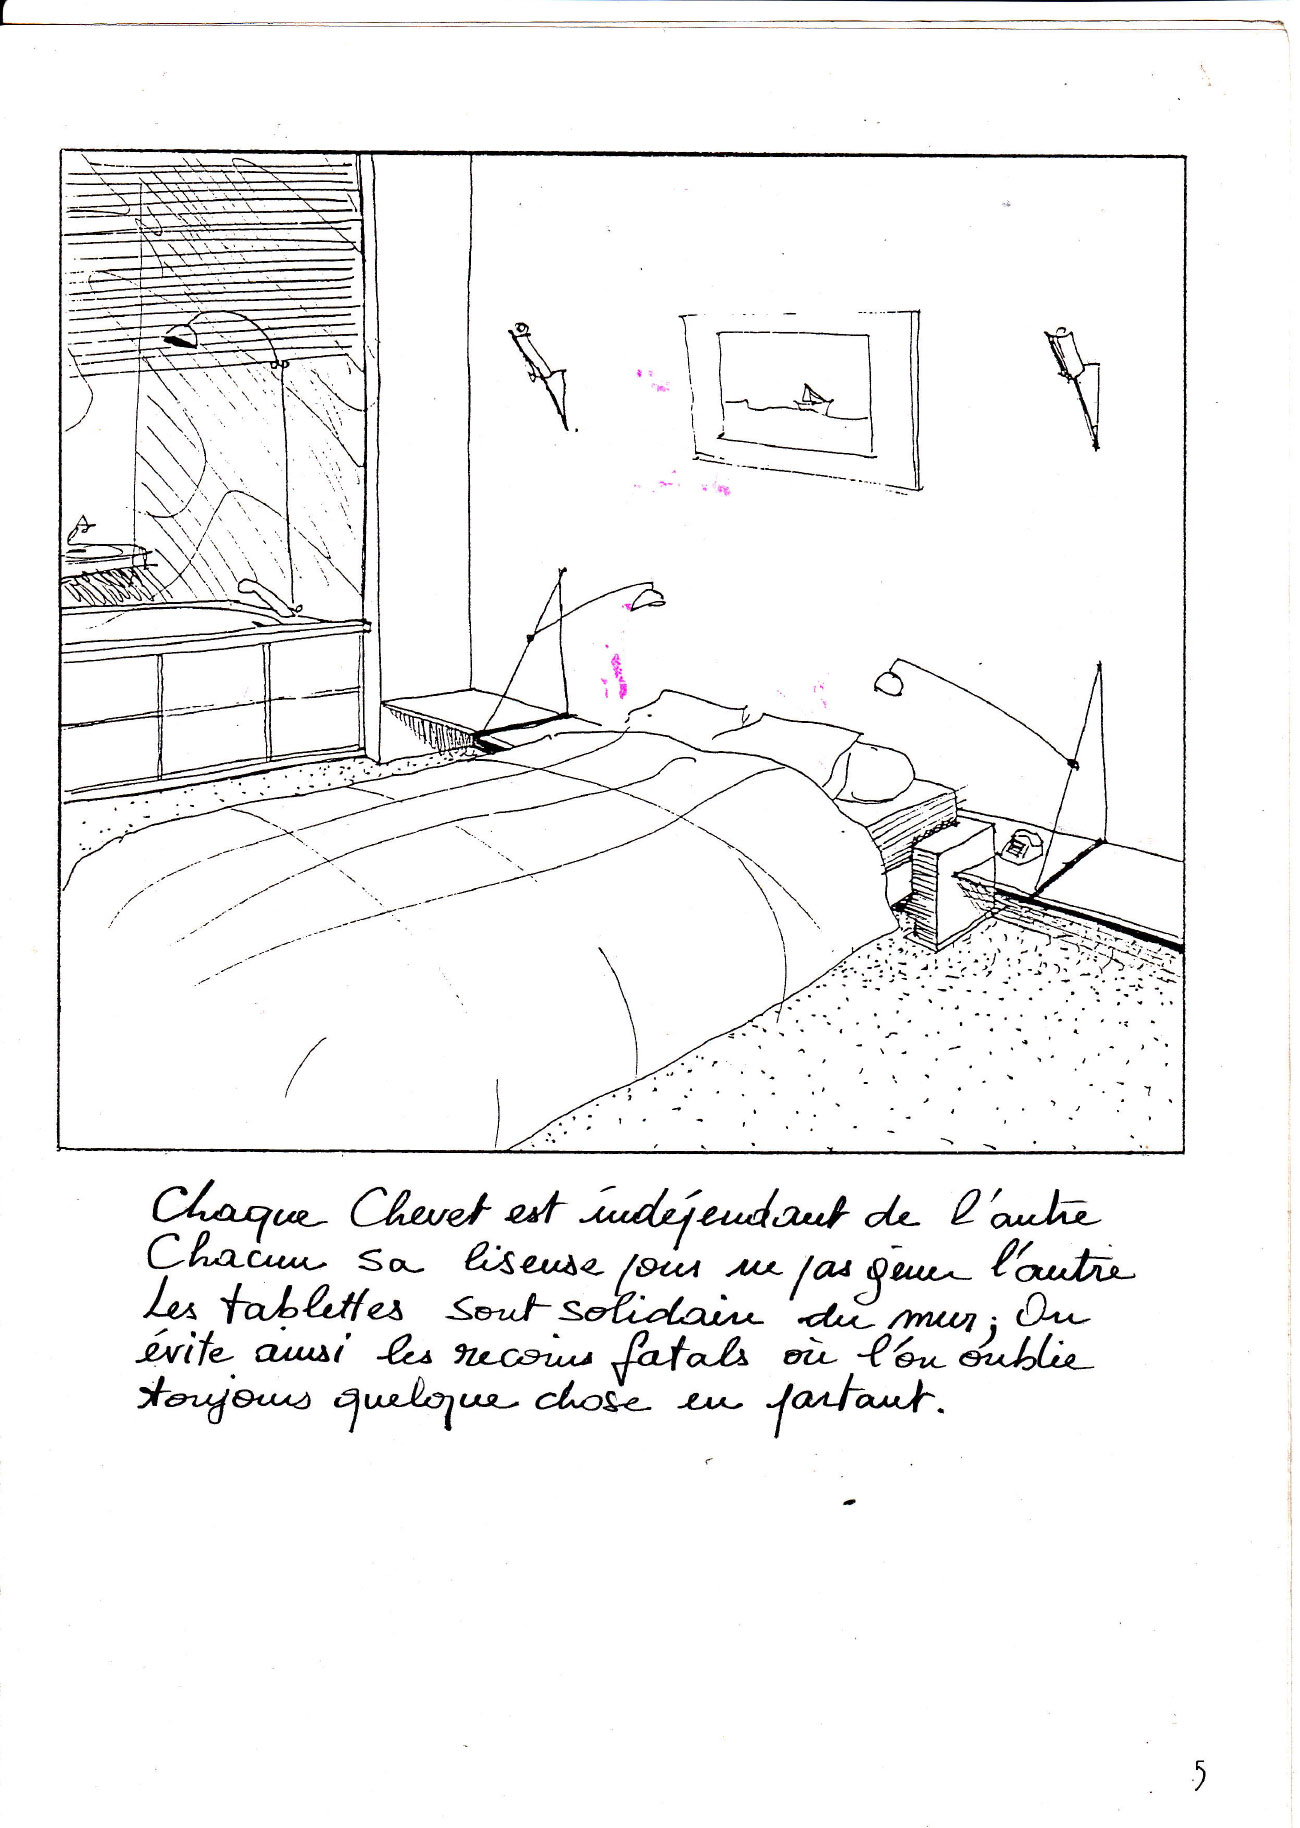 Chaque Chevet est indépendant de l'autre
Chacun sa liseuse pour ne pas gêner l'autre
Les tablettes sont solidaire du mur; On
évite ainsi les recoins fatals où l'on oublie
toujours quelque chose en partant.
5